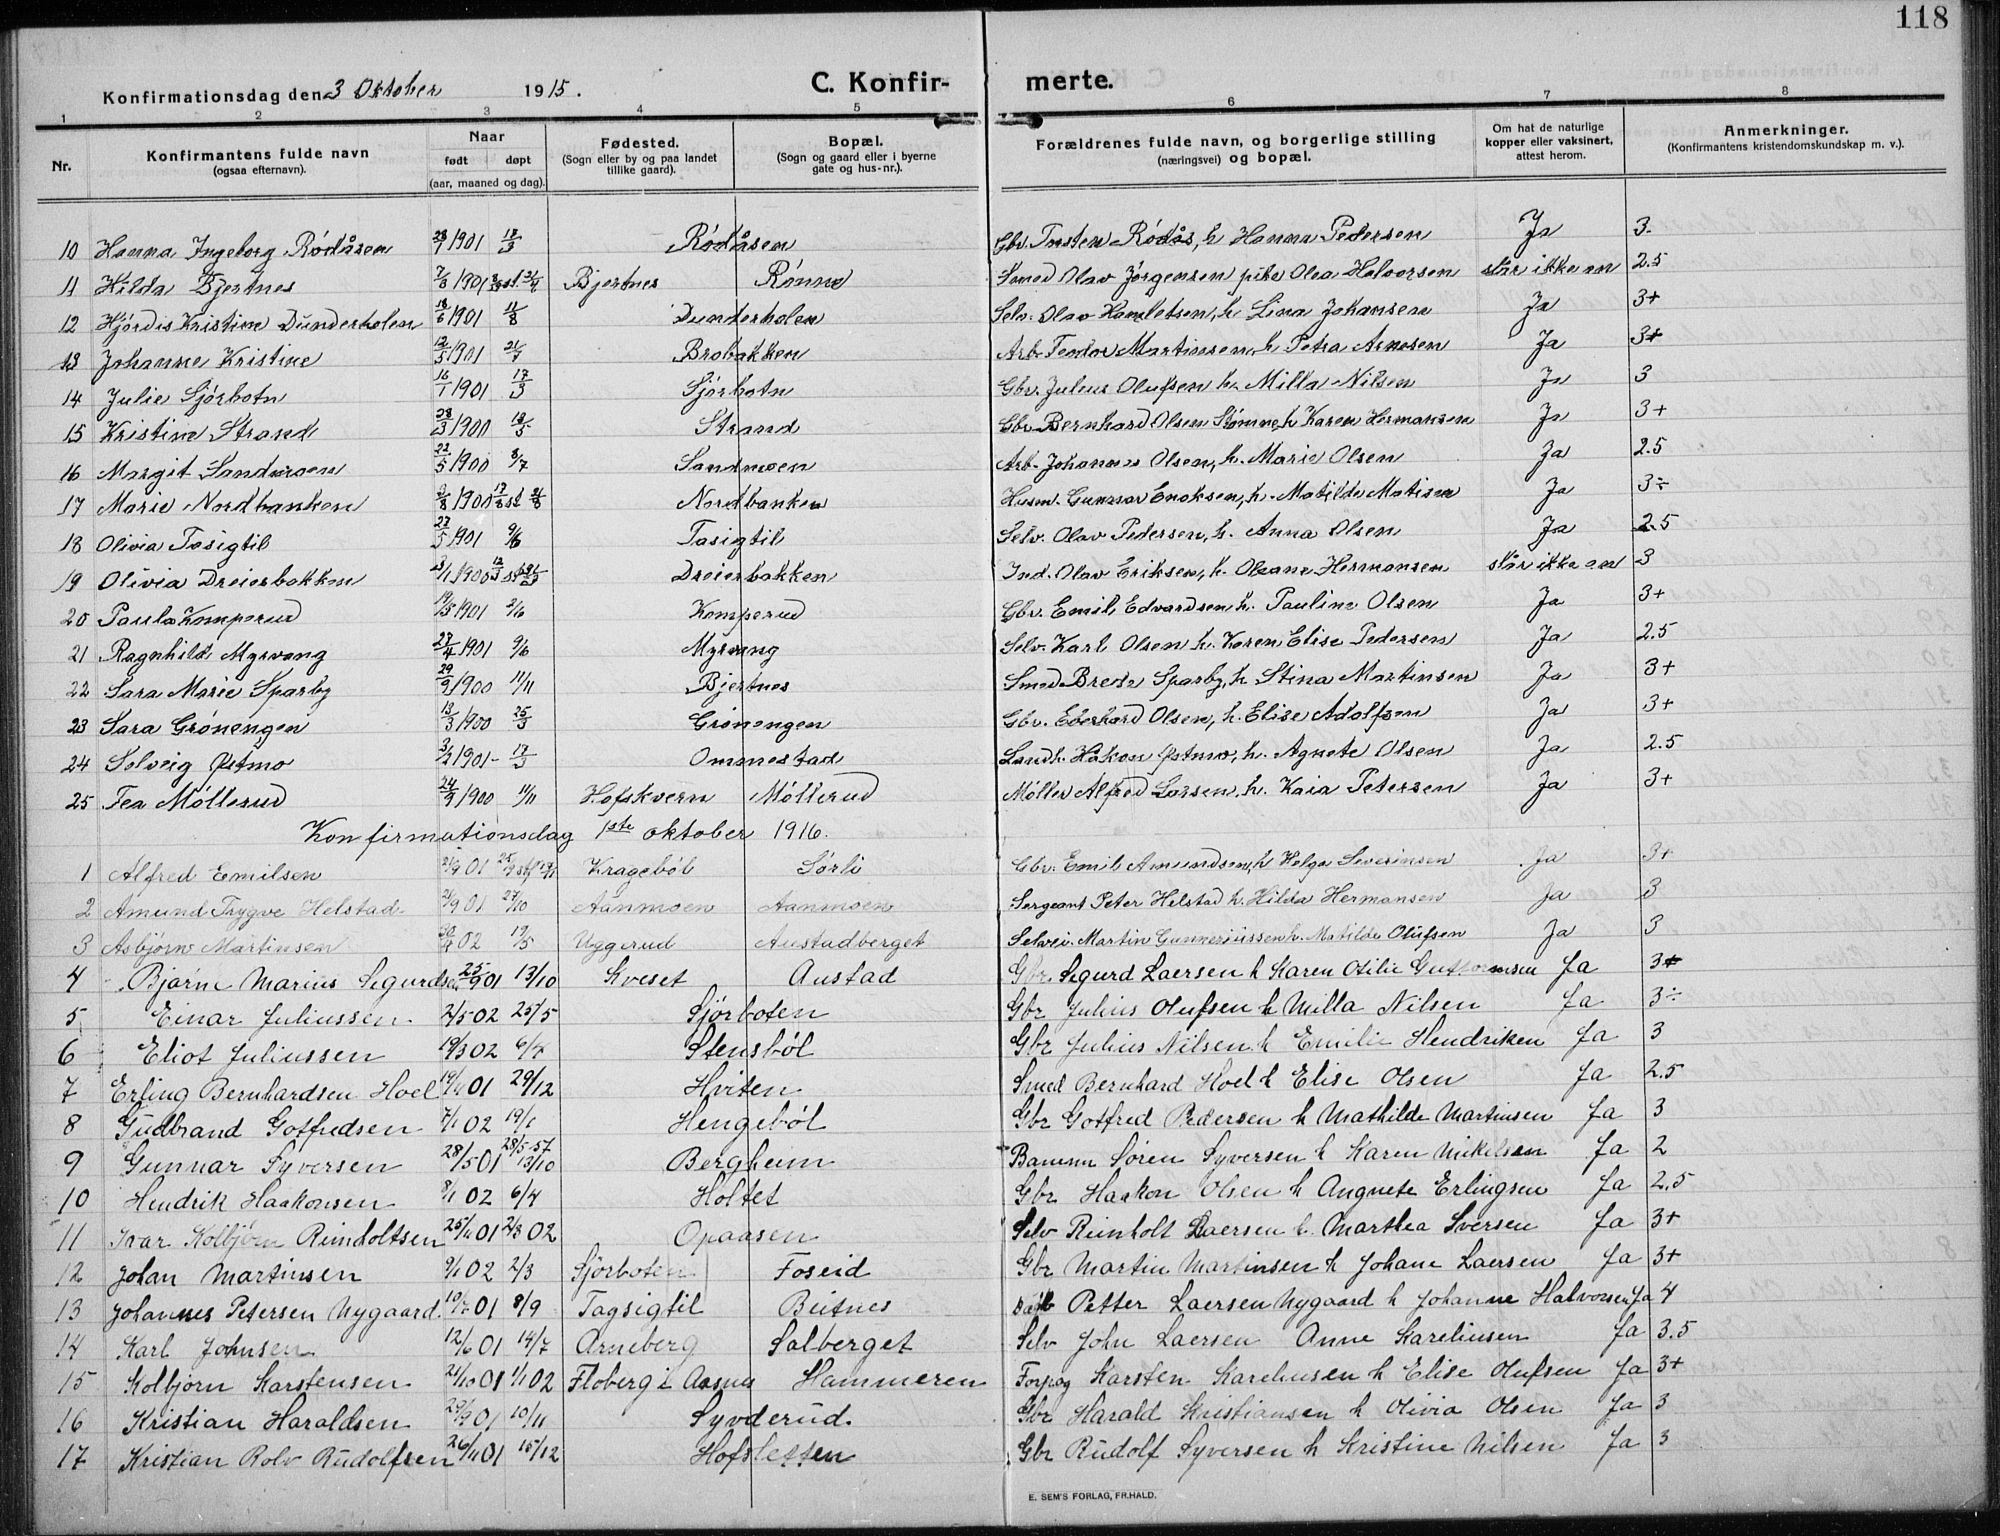 118
Konfirmationsdag den 3 Oktober 1915. C. Konfir- merte.
1 2 3 4 5 6 7 8
Nr. Konfirmantens fulde navn (ogsaa efternavn). Naar født døpt (aar, maaned og dag). Fødested. (Sogn eller by og paa landet tillike gaard). Bopæl. (Sogn og gaard eller i byerne gate og hus-nr.). Forældrenes fulde navn, og borgerlige stilling (næringsvei) og bopæl. Om hat de naturlige kopper eller vaksinert, attest herom. Anmerkninger. (Konfirmantens kristendomskundskap m. v.).
10 Hanna Ingeborg Rødåsen 28/1 1901 17/3 Rødåsen Gbr. Torsten Rødås, h Hanna Pedersen Ja 3.
11 Hilda Bjertnes 7/3 1901 Bjertnes Rønne Smed Olav Jørgensen pike Olea Halvorsen står ikke an 2.5
12 Hjørdis Kristine Dunderholen 18/6 1901 11/8 Dunderholen Selv. Olav Hamletsen, h Lina Johansen Ja 3+
13 Johanne Kristine 12/5 1901 21/7 Brobakken Arb. Teodor Martinsen, h Petra Arnesen Ja 3+
14 Julie Sjørbotn 16/1 1901 17/3 Sjørbotn Gbr. Julius Olufsen h. Milla Nilsen Ja 3
15 Kristine Strand 28/3 1900 13/5 Strand Gbr. Bernhard Olsen h Karen Hermansen Ja 3+
16 Margit Sandmoen 22/5 1900 8/7 Sandmoen Arb. Johannes Olsen, h. Marie Olsen Ja 2.5
17 Marie Nordbanken 9/8 1900 Nordbanken Husm. Gunnar Enoksen, h. Matilde Matisen Ja 3÷
18 Olivia Tasigtil 27/5 1901 9/6 Tasigtil Selv. Olav Pedersen, h. Anna Olsen Ja 2.5
19 Olivia Dreierbakken 1900 Dreierbakken Ind. Olav Eriksen, h. Oleane Hermansen står ikke an 3
20 Paula Komperud 19/5 1901 2/6 Komperud Gbr. Emil Edvardsen h. Pauline Olsen Ja 3+
21 Ragnhild Myrvang 27/4 1901 9/6 Myrvang Selv. Karl Olsen h. Karen Elise Pedersen Ja 2.5
22 Sara Marie Sparby 29/9 1900 11/11 Bjertnes Smed Brede Sparby, h Stina Martinsen Ja 3+
23 Sara Grønengen 13/3 1900 25/3 Grønengen Gbr. Eberhard Olsen, h. Elise Adolfsen Ja 3+
24 Solveig Østmo 3/2 1901 - 17/3 Ommestad Landh. Håkon Østmo, h. Agnete Olsen Ja 2.5
25 Tea Møllerud 24/9 1900 11/11 Hofskvern Møllerud Møller Alfred Larsen, h. Kaia Petersen Ja 3+
Konfirmationsdag 1ste oktober 1916.
1 Alfred Emilsen 21/9 01 Kragebøl Sørli Gbr. Emil Amundsen, h Helga Severinsen Ja 3+
2 Amund Trygve Helstad 21/9 01 27/10 Aanmoen Aanmoen Sergeant Peter Helstad h. Hilda Hermansen Ja 3
3 Asbjørn Martinsen 02 19/5 Uggerud Austadberget Selvei. Martin Gunneriussen h. Matilde Olufsen Ja 3
4 Bjarne Marius Segurdsen 25/9 01 13/10 Kveset Austad Gbr. Segurd Laersen h Karen Otilie Guttormsen Ja 3+
5 Einar Juliussen 2/5 02 25/5 Sjörboten Gbr Julius Olufsen h Milla Nilsen Ja 3÷
6 Eliot Juliussen 19/3 02 6/4 Stensböl Gbr Julius Nilsen h Emilie Hendriken Ja 3
7 Erling Bernhardsen Hoel 14/11 01 29/12 Hviten Smed Bernhard Hoel h Elise Olsen Ja 2.5
8 Gudbrand Gotfredsen 7/1 02 19/1 Hengeböl Gbr Gotfred Pedersen h Mathilde Martinsen Ja 3
9 Gunnar Syversen 28/5 01 13/10 Bergheim Banemn Sören Syversen h Karen Mikelsen Ja 2
10 Hendrik Haakonsen 8/1 02 6/4 Holtet Gbr Haakon Olsen h Angnete Erlingsen Ja 2.5
11 Ivar Kolbjörn Reindoltsen 25/11 01 2/3 02 Opaasen Selv Reinholt Laersen h. Marthea Sversen Ja 3+
12 Johan Martinsen 9/1 02 2/3 Sjörboten Foseid Gbr Martin Martinsen h Johane Laersen Ja 3+
13 Johannes Petersen Nygaard 19/7 01 8/9 Tagsigtil Beitnes Petter Laersen Nygaard h Johanne Halvorsen Ja 4
14 Karl Johnsen 12/6 01 14/7 Arneberg Salberget Selv John Laersen Anne Karelinsen Ja 3.5
15 Kolbjørn Karstensen 21/10 01 1/1 02 Floberg i Aasnes Hammeren Forpag Karsten Karelinsen h Elise Olufsen Ja 3+
16 Kristian Haraldsen 29/9 01 10/11 Syvderud Gbr Harald Kristiansen h Olivia Olsen Ja 3
17 Kristian Rolv Rudolfsen 26/11 01 15/12 Hofsletten Gbr Rudolf Syversen h Kristine Nilsen Ja 3
E. SEM'S FORLAG, FR.HALD.